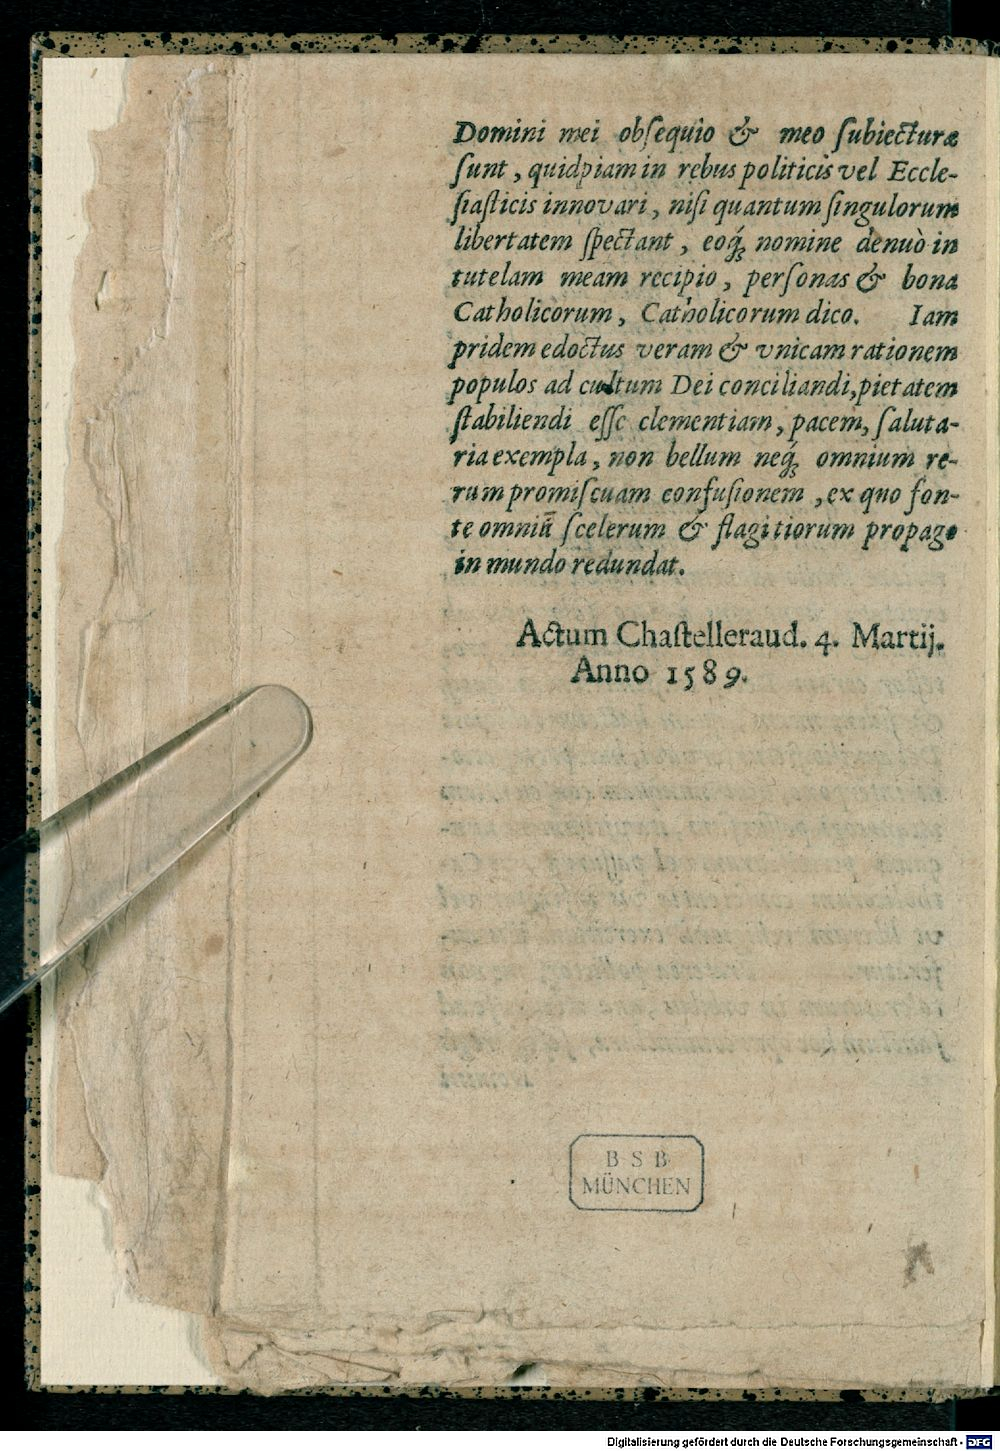 Domini mei obſequio & meo ſubiecturæ
ſunt, quidpiam in rebus politicis vel Eccle-
ſiaſticis innovari, niſi quantum ſingulorum
libertatem ſpectant, eoq́; nomine denuò in
tutelam meam recipio, perſonas & bona
Catholicorum, Catholicorum dico. Iam
pridem edoctus veram & vnicam rationem
populos ad cultum Dei conciliandi, pietatem
ſtabiliendi eſſe clementiam, pacem, ſaluta-
ria exempla, non bellum neq́; omnium re-
rum promiſcuam confuſionem, ex quo fon-
te omniū ſcelerum & flagitiorum propago
in mundo redundat.
Actum Chaſtelleraud. 4. Martij.
Anno 1589.
B S B
MÜNCHEN
Digitalisierung gefördert durch die Deutsche Forschungsgemeinschaft - DFG